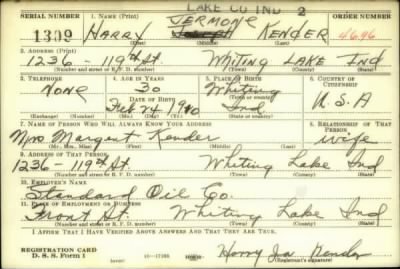 LAKE CO IND 2
SERIAL NUMBER 1. Name (Print) ORDER NUMBER
JERMONE
1309 HARRY Joseph KENDER 4696
(First) (Middle) (Last)
2. Address (Print)
1236 - 119th St. Whiting Lake Ind
(Number and street or R. F. D. number) (Town) (County) (State)
3. Telephone 4. Age in Years 5. Place of Birth 6. Country of Citizenship
None 30 Whiting
Date of Birth
Feb 24 1910 Ind. U.S.A
(Mo.) (Day) (Yr.) (State or country)
7. Name of Person Who Will Always Know Your Address 8. Relationship of That Person
Mrs Margaret Kender wife
(Mr., Mrs., Miss) (First) (Middle) (Last)
9. Address of That Person
1236 - 119th St. Whiting Lake Ind
(Number and street or R. F. D. number) (Town) (County) (State)
10. Employer's Name
Standard Oil Co.
11. Place of Employment or Business
Front St. Whiting Lake Ind
(Number and street or R. F. D. number) (Town) (County) (State)
I Affirm That I Have Verified Above Answers and That They Are True.
REGISTRATION CARD
D. S. S. Form 1 16—17105 Harry Kender
(Registrant's signature)